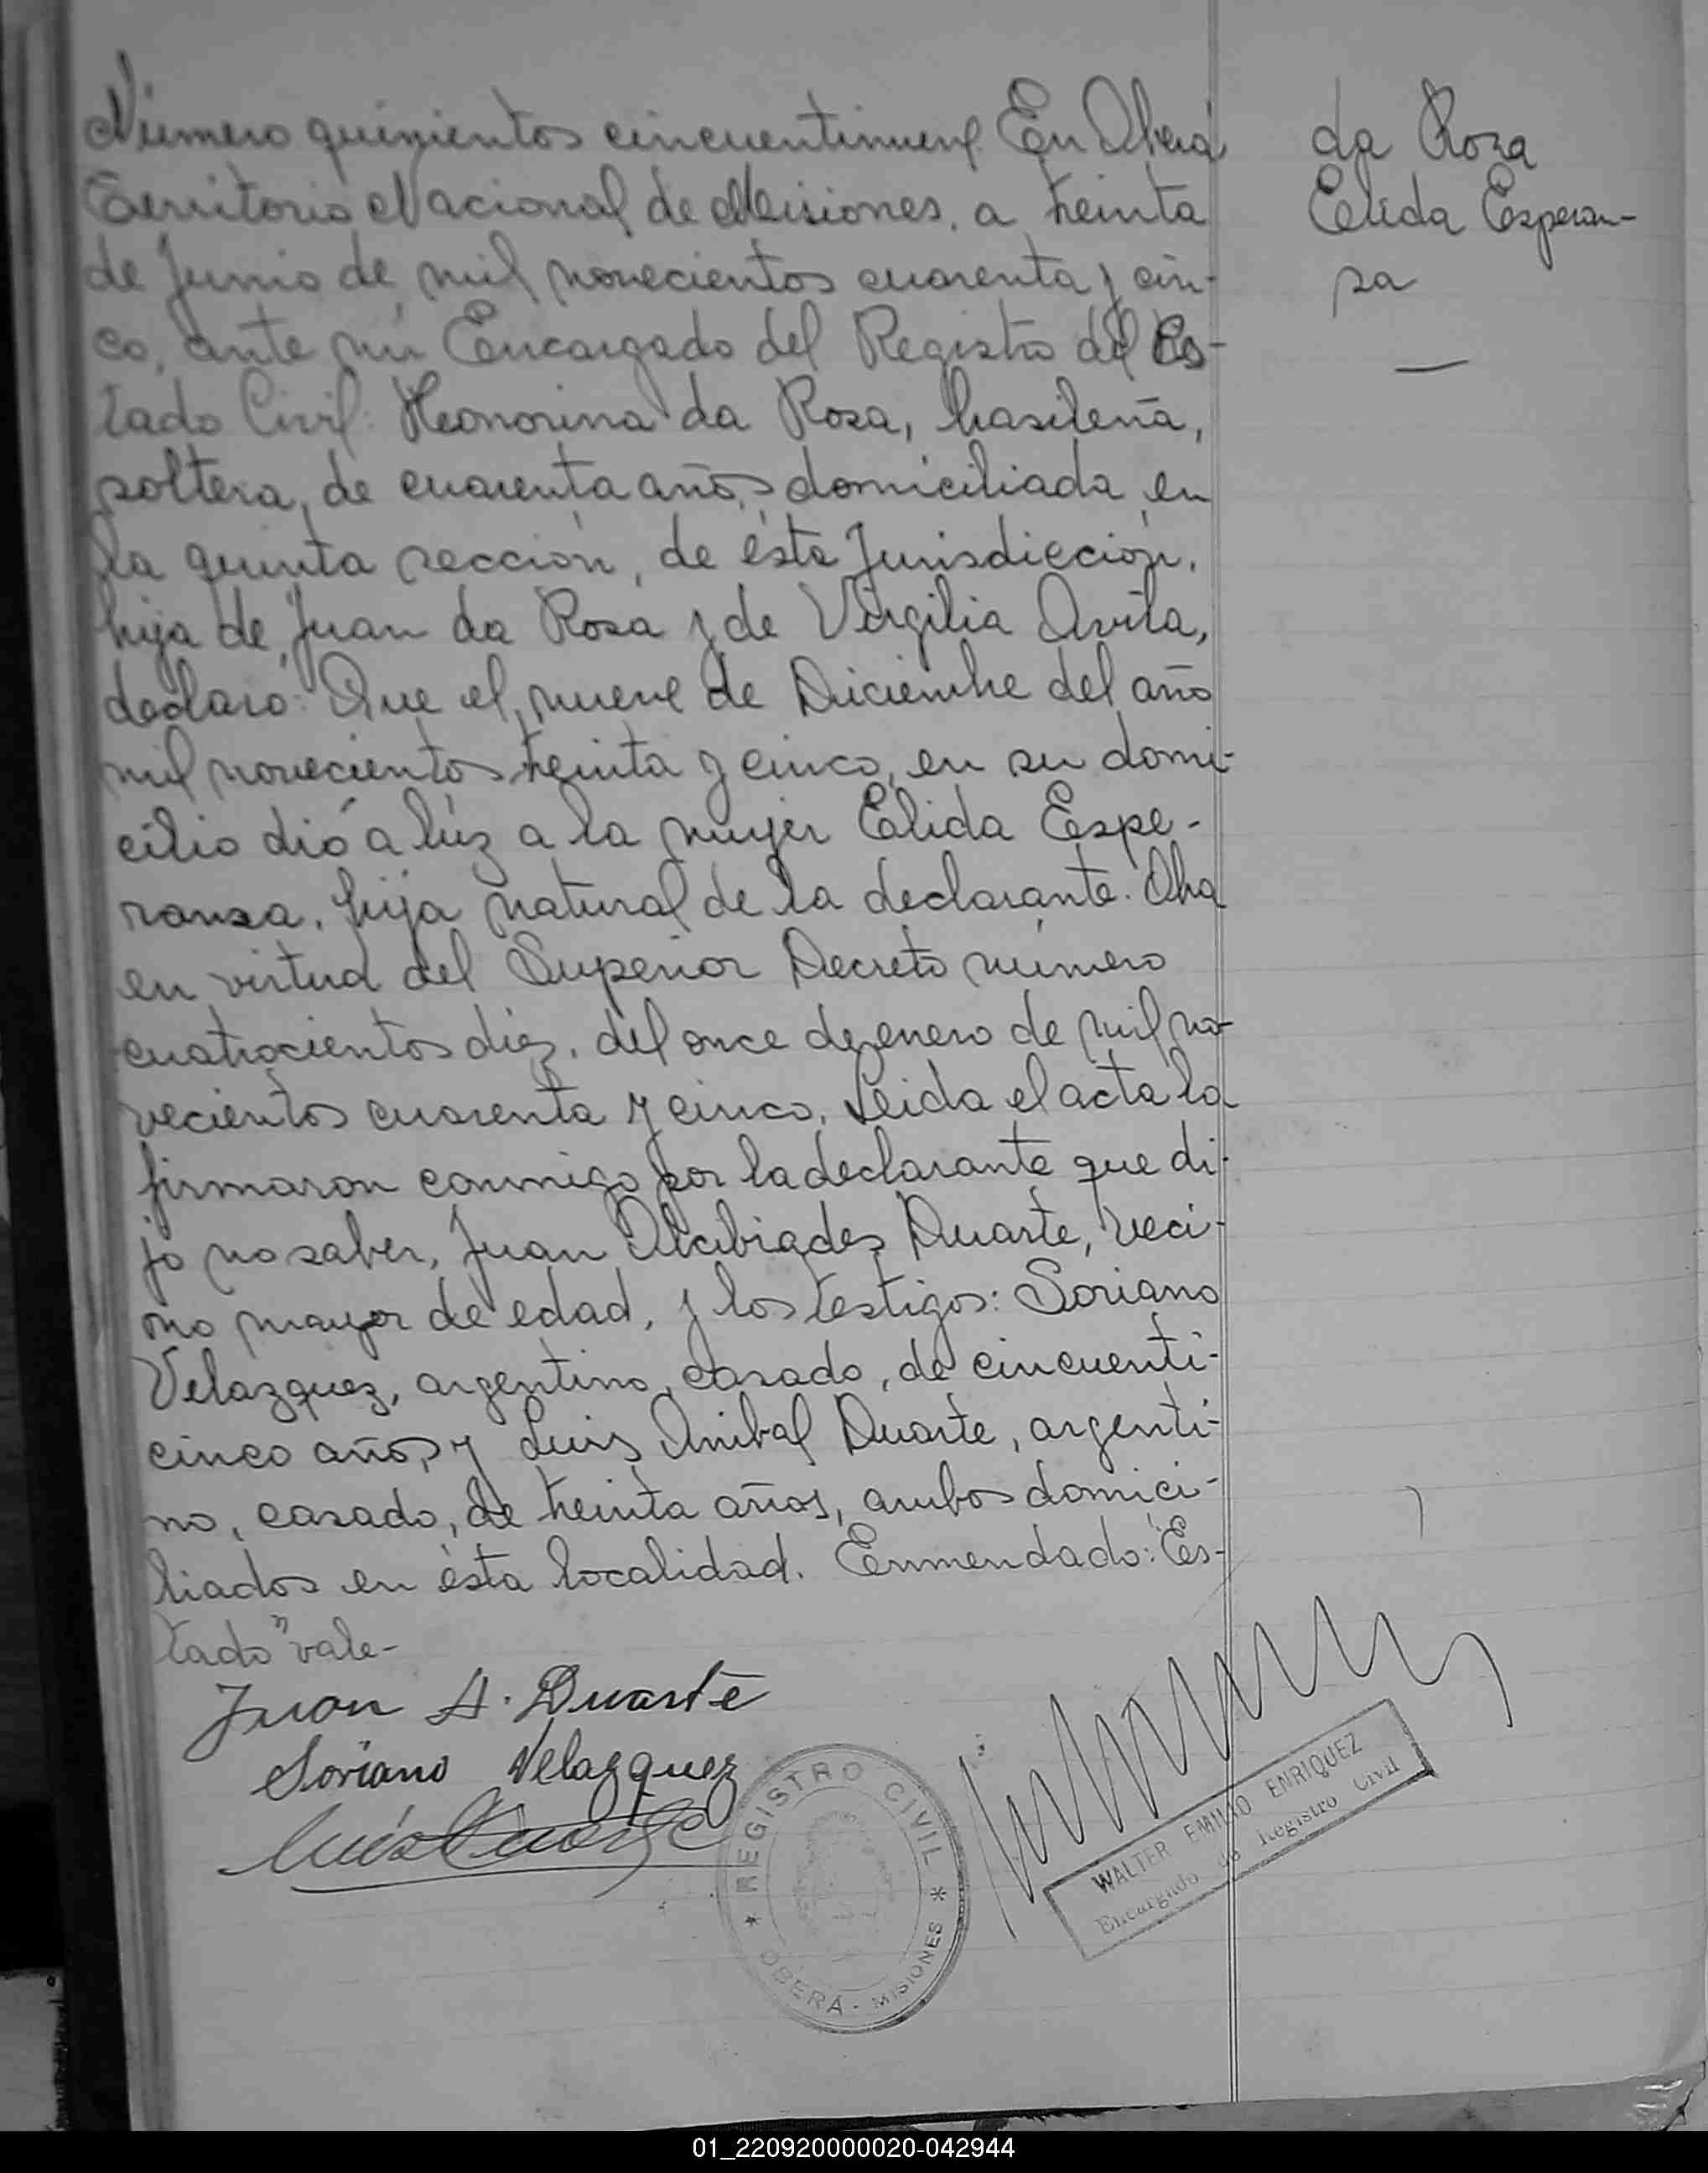 Número quinientos cincuentinueve. En Oberá
Territorio Nacional de Misiones, a treinta
de Junio de mil novecientos cuarenta y cin-
co, ante mí Encargado del Registro del Es-
tado Civil: Honorina da Rosa, brasileña,
soltera, de cuarenta años, domiciliada en
la quinta sección, de ésta Jurisdicción,
hija de Juan da Rosa y de Virgilia Avila,
declaro: Que el nueve de Diciembre del año
mil novecientos treinta y cinco, en su domi-
cilio dió a lúz a la mujer Elida Espe-
ransa, hija natural de la declarante. Obra
en virtud del Superior Decreto número
cuatrocientos diez, del once de enero de mil no-
vecientos cuarenta y cinco. Leida el acta la
firmaron conmigo por la declarante que di-
jo no saber, Juan Alcibiades Duarte, veci-
no mayor de edad, y los testigos: Soriano
Velazquez, argentino, casado, de cincuenti-
cinco años, y Luis Anibal Duarte, argenti-
no, casado, de treinta años, ambos domici-
liados en ésta localidad. Enmendado: "Es-
tado" vale-
da Rosa
Elida Esperan-
sa
Juan A. Duarte
Soriano Velazquez
Luis Duarte
REGISTRO CIVIL
OBERÁ - MISIONES
WALTER EMILIO ENRIQUEZ
Encargado de Registro Civil
01_220920000020-042944